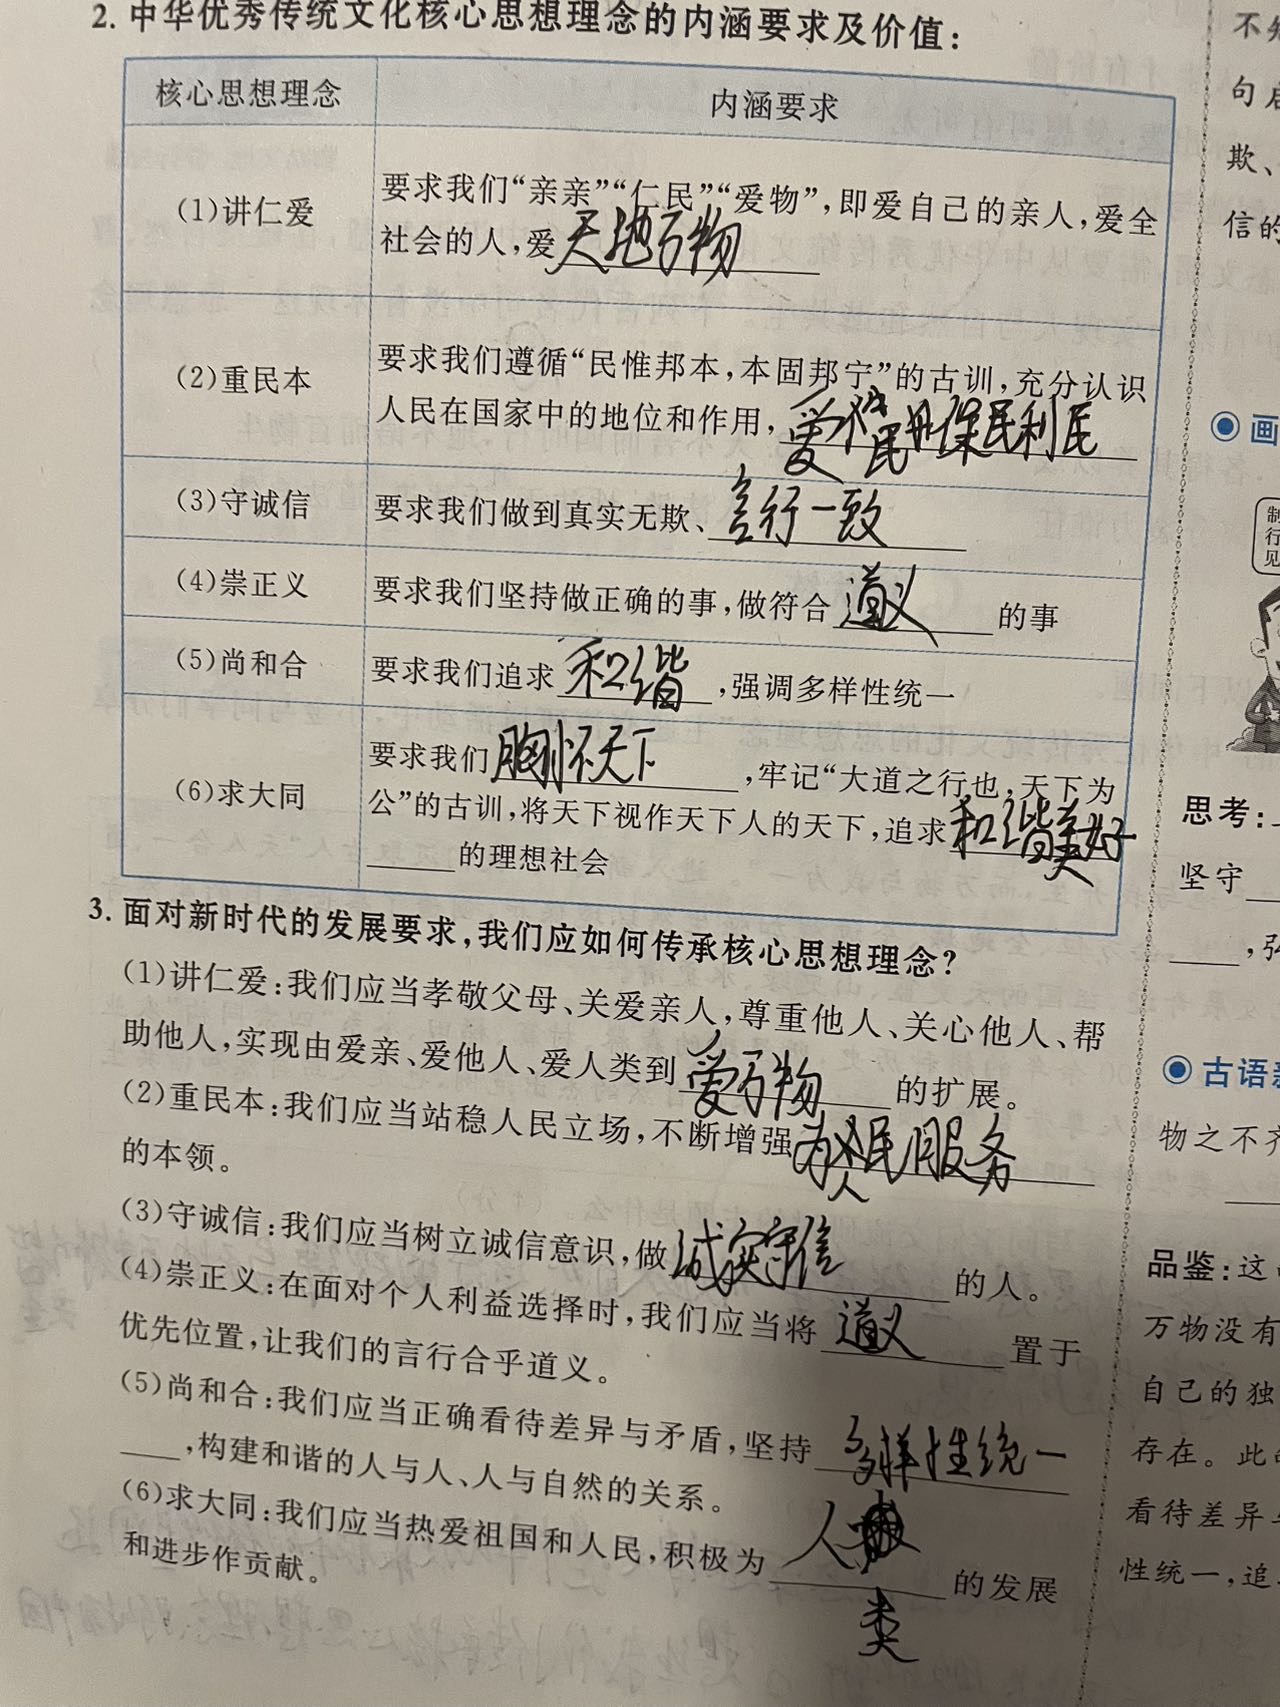 2. 中华优秀传统文化核心思想理念的内涵要求及价值：
核心思想理念 内涵要求
(1)讲仁爱
要求我们“亲亲”“仁民”“爱物”，即爱自己的亲人，爱全
社会的人，爱天地万物
(2)重民本
要求我们遵循“民惟邦本，本固邦宁”的古训，充分认识
人民在国家中的地位和作用，爱民保民利民
(3)守诚信
要求我们做到真实无欺、言行一致
(4)崇正义
要求我们坚持做正确的事，做符合道义的事
(5)尚和合
要求我们追求和谐，强调多样性统一
(6)求大同
要求我们胸怀天下，牢记“大道之行也，天下为
公”的古训，将天下视作天下人的天下，追求和谐美好
的理想社会
3. 面对新时代的发展要求，我们应如何传承核心思想理念？
(1)讲仁爱：我们应当孝敬父母、关爱亲人，尊重他人、关心他人、帮
助他人，实现由爱亲、爱他人、爱人类到爱万物的扩展。
(2)重民本：我们应当站稳人民立场，不断增强为人民服务
的本领。
(3)守诚信：我们应当树立诚信意识，做诚实守信的人。
(4)崇正义：在面对个人利益选择时，我们应当将道义置于
优先位置，让我们的言行合乎道义。
(5)尚和合：我们应当正确看待差异与矛盾，坚持多样性统一
，构建和谐的人与人、人与自然的关系。
(6)求大同：我们应当热爱祖国和人民，积极为人类的发展
和进步作贡献。
句
欺、
信的
画
制
行
见
思考：
坚守
，弘
古语
物之不齐
品鉴：这
万物没有
自己的独
存在。此
看待差异
性统一，追